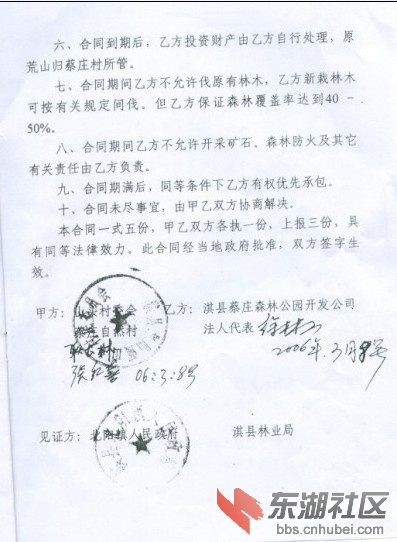 六、合同到期后，乙方投资财产由乙方自行处理，原
荒山归蔡庄村所管。
七、合同期间乙方不允许伐原有林木，乙方新栽林木
可按有关规定间伐。但乙方保证森林覆盖率达到40－
50%。
八、合同期间乙方不允许开采矿石。森林防火及其它
有关责任由乙方负责。
九、合同期满后，同等条件下乙方有权优先承包。
十、合同未尽事宜，由甲乙双方协商解决。
本合同一式五份，甲乙双方各执一份，上报三份，具
有同等法律效力。此合同经当地政府批准，双方签字生
效。
甲方： 村委会 乙方：淇县蔡庄森林公园开发公司
自然村 法人代表
2006年.3月8号
06:3:8号
见证方：北阳镇人民政府 淇县林业局
东湖社区
bbs.cnhubei.com